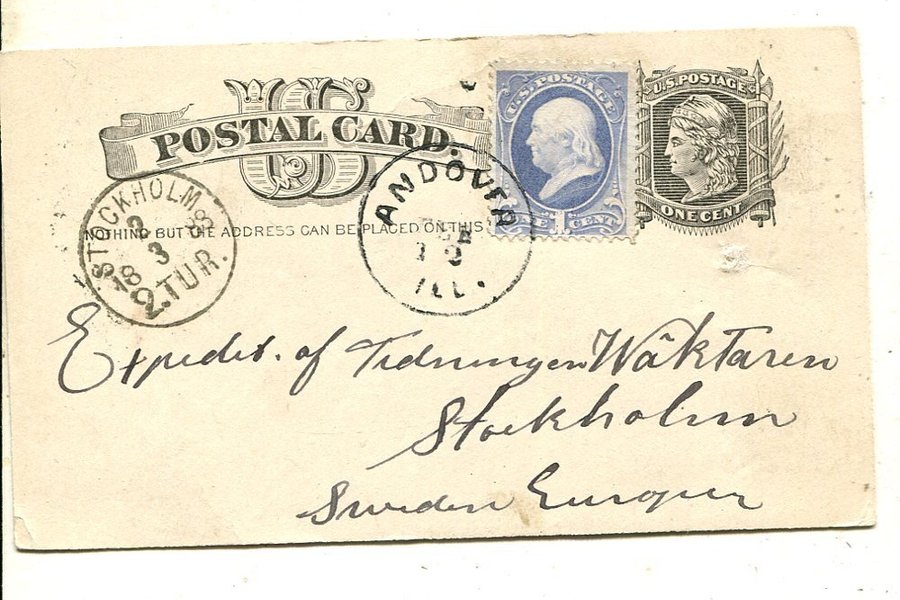 US
POSTAL CARD.
U.S. POSTAGE
ONE CENT
U.S. POSTAGE
ONE CENT
NOTHING BUT THE ADDRESS CAN BE PLACED ON THIS
STOCKHOLM
3
18 3 88
2. TUR.
ANDOVER
ILL.
Expedit. of Tidningen Wäktaren
Stockholm
Sweden Europen